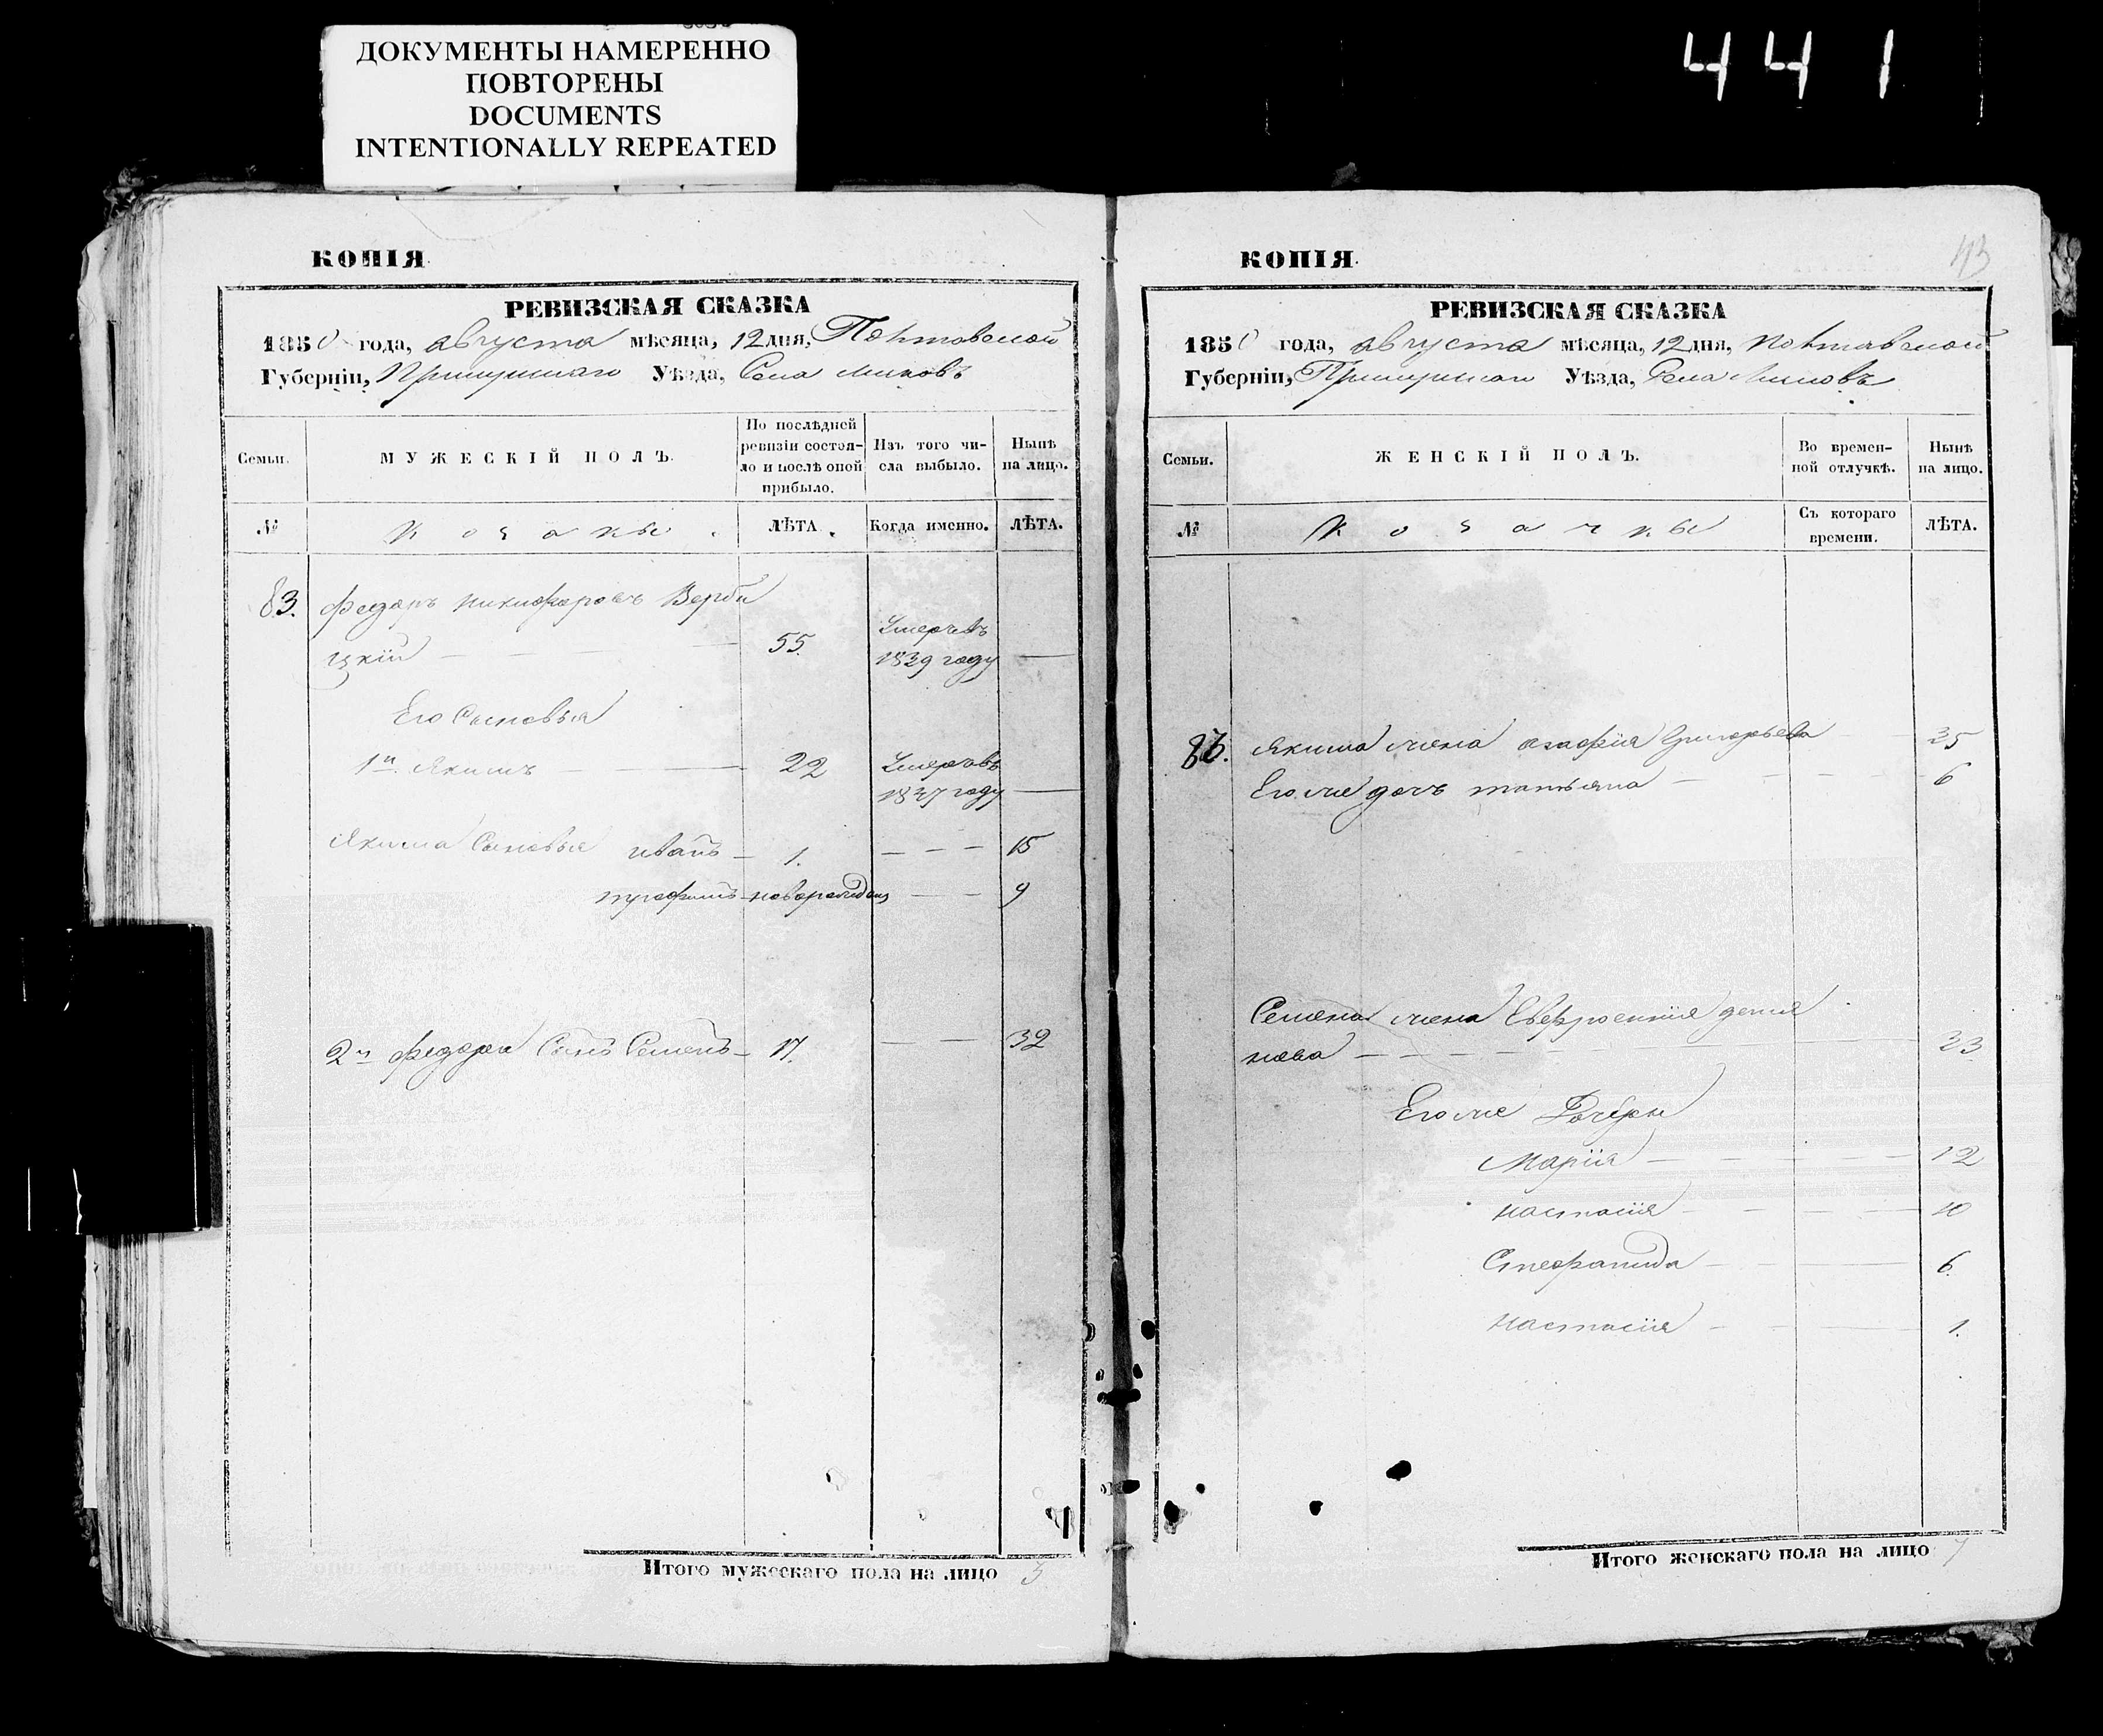 ДОКУМЕНТЫ НАМЕРЕННО
ПОВТОРЕНЫ
DOCUMENTS
INTENTIONALLY REPEATED
441
КОПІЯ.
РЕВИЗСКАЯ СКАЗКА
1850 года, августа мѣсяца, 12 дня, Полтавской
Губерніи, Прилуцкаго Уѣзда, Села
Семьи.
МУЖЕСКІЙ ПОЛЪ.
По послѣдней
ревизіи состоя-
ло и послѣ оной
прибыло.
Изъ того чи-
сла выбыло.
Нынѣ
на лицо.
№
Козаки
ЛѢТА.
Когда именно.
ЛѢТА.
83. Федоръ Никифоровъ Верби
цкій — 55. Умеръ въ
1839 году —
Его Сыновья
1й Якимъ — 22 Умеръ въ
1847 году —
Якима Сыновья иванъ — 1. — 15
трофимъ — новорожден — 9
2й Федора Сынъ Семенъ — 17. — 32
Итого мужескаго пола на лицо 3
КОПІЯ.
43
РЕВИЗСКАЯ СКАЗКА
1850 года, августа мѣсяца, 12 дня, Полтавской
Губерніи, Прилуцкаго Уѣзда, Села
Семьи.
ЖЕНСКІЙ ПОЛЪ.
Во времен-
ной отлучкѣ.
Нынѣ
на лицо.
№
Козачки
Съ котораго
времени.
ЛѢТА.
83. Якима жена агафія Григорьева — 35
Его же дочь татьяна — 6
Семена жена Евфросинія демья
нова — 33
Его же Дочери
Марія — 12
настасія — 10
Стефанида — 6.
настасія — 1.
Итого женскаго пола на лицо 7